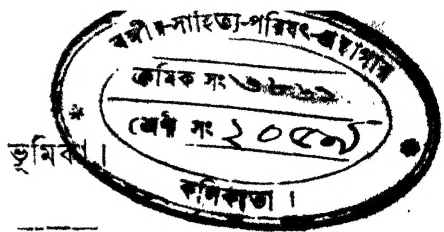 বঙ্গীয়-সাহিত্য-পরিষৎ-গ্রন্থাগার
ক্রমিক সং
শ্রেণী সং ২০৫৯
কলিকাতা ।
ভূমিকা ।